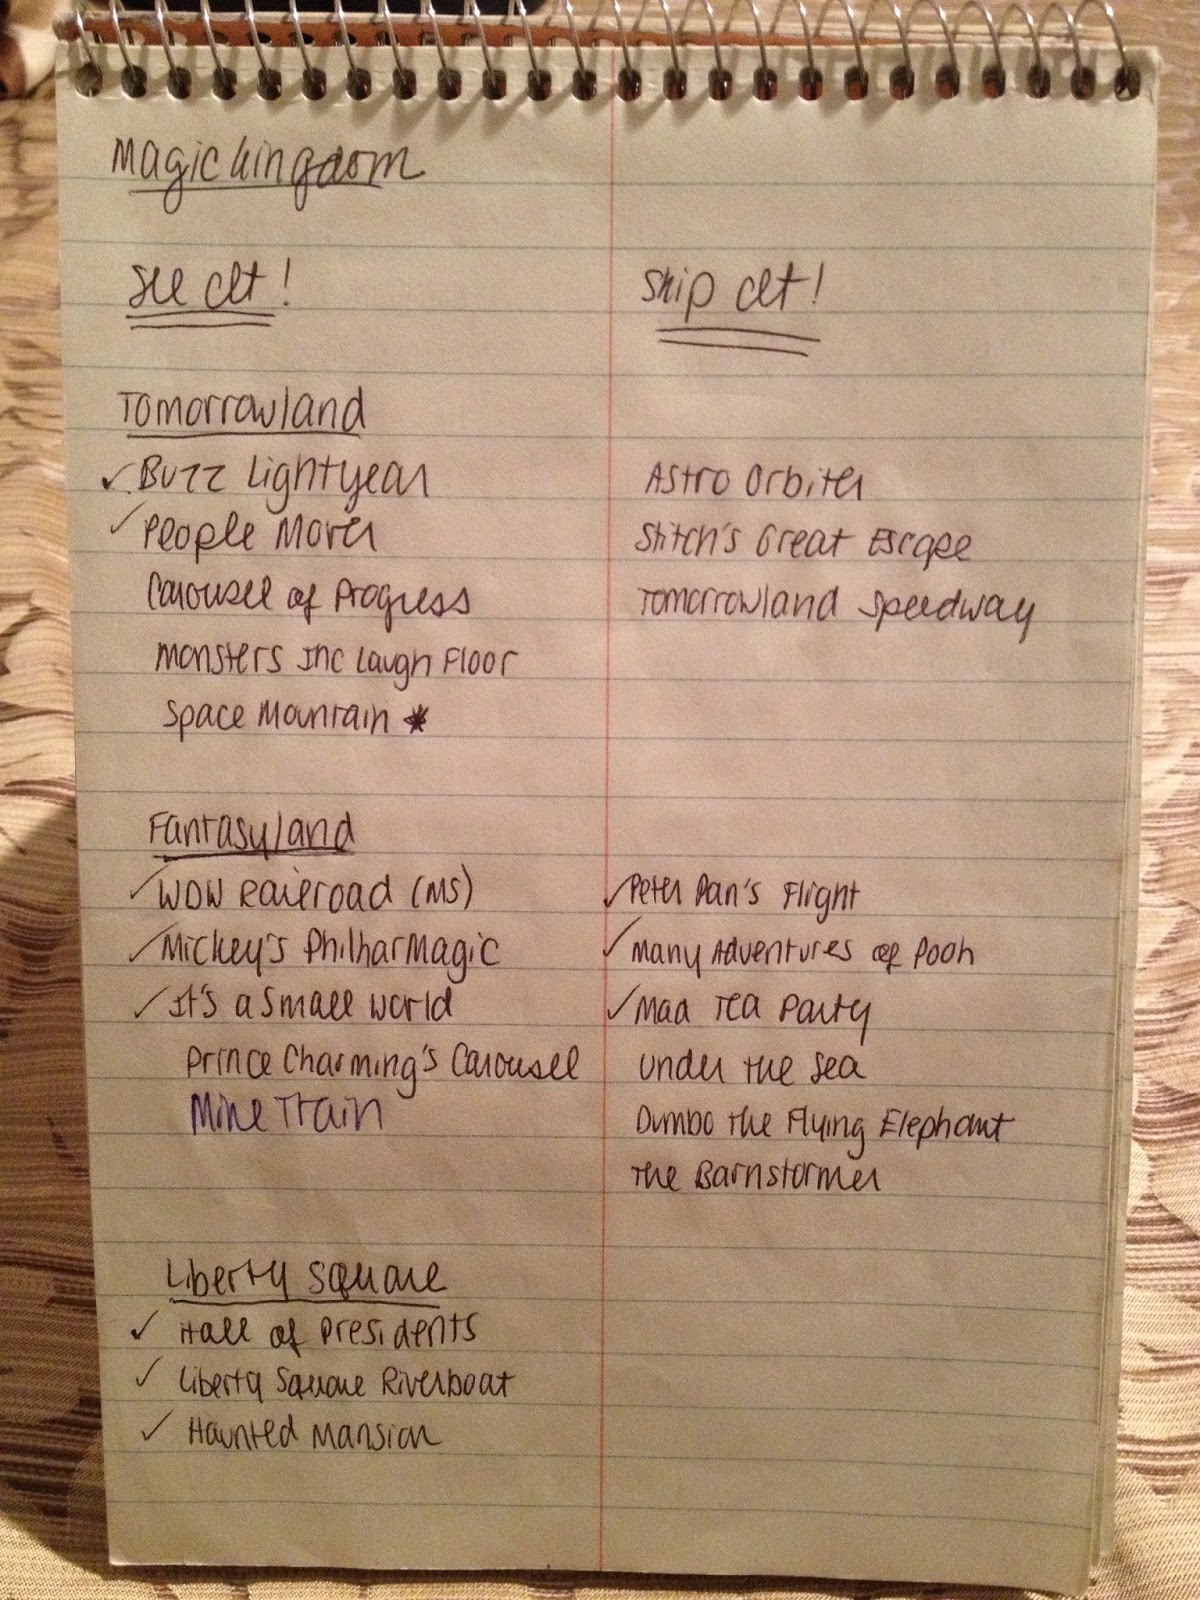 Magic Kingdom
See it!
Skip it!
Tomorrowland
✓ Buzz Lightyear
✓ People Mover
Carousel of Progress
Monsters Inc Laugh Floor
Space Mountain *
Astro Orbiter
Stitch's Great Escape
Tomorrowland Speedway
Fantasyland
✓ WDW Railroad (MS)
✓ Mickey's PhilharMagic
✓ It's a small world
Prince Charming's Carousel
Mine Train
✓ Peter Pan's Flight
✓ Many Adventures of Pooh
✓ Mad Tea Party
Under the Sea
Dumbo the Flying Elephant
The Barnstormer
Liberty Square
✓ Hall of Presidents
✓ Liberty Square Riverboat
✓ Haunted Mansion